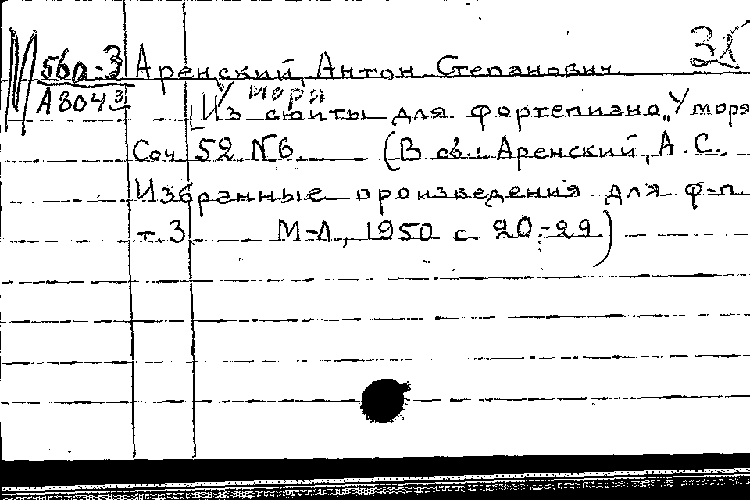 56а-3 Аренский, Антон Степанович 31
А8043 У моря
[Из сюиты для фортепиано „У моря
Соч. 52 N6. (В сб.: Аренский, А. С.
Избранные произведения для ф-п
т. 3 М-Л, 1950 с. 20-29)